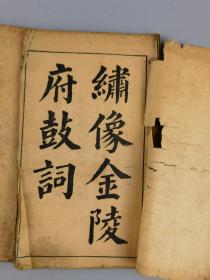 繡像金陵
府鼓詞